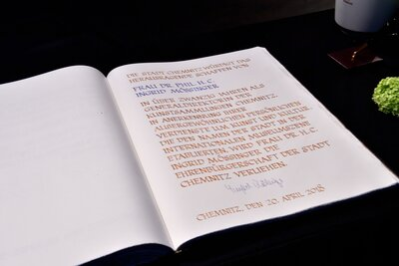 DIE STADT CHEMNITZ WÜRDIGT DAS
HERAUSRAGENDE SCHAFFEN VON
FRAU DR. PHIL. H. C.
INGRID MÖSSINGER
IN ÜBER ZWANZIG JAHREN ALS
GENERALDIREKTORIN DER
KUNSTSAMMLUNGEN CHEMNITZ.
IN ANERKENNUNG IHRER PERSÖNLICHEN
AUSSERGEWÖHNLICHEN
VERDIENSTE UM KUNST UND KULTUR,
DIE DEN NAMEN DER STADT IN DER
INTERNATIONALEN MUSEUMSSZENE
ETABLIERTEN, WIRD FRAU DR. H. C.
INGRID MÖSSINGER DIE
EHRENBÜRGERSCHAFT DER STADT
CHEMNITZ VERLIEHEN.
CHEMNITZ, DEN 20. APRIL 2018